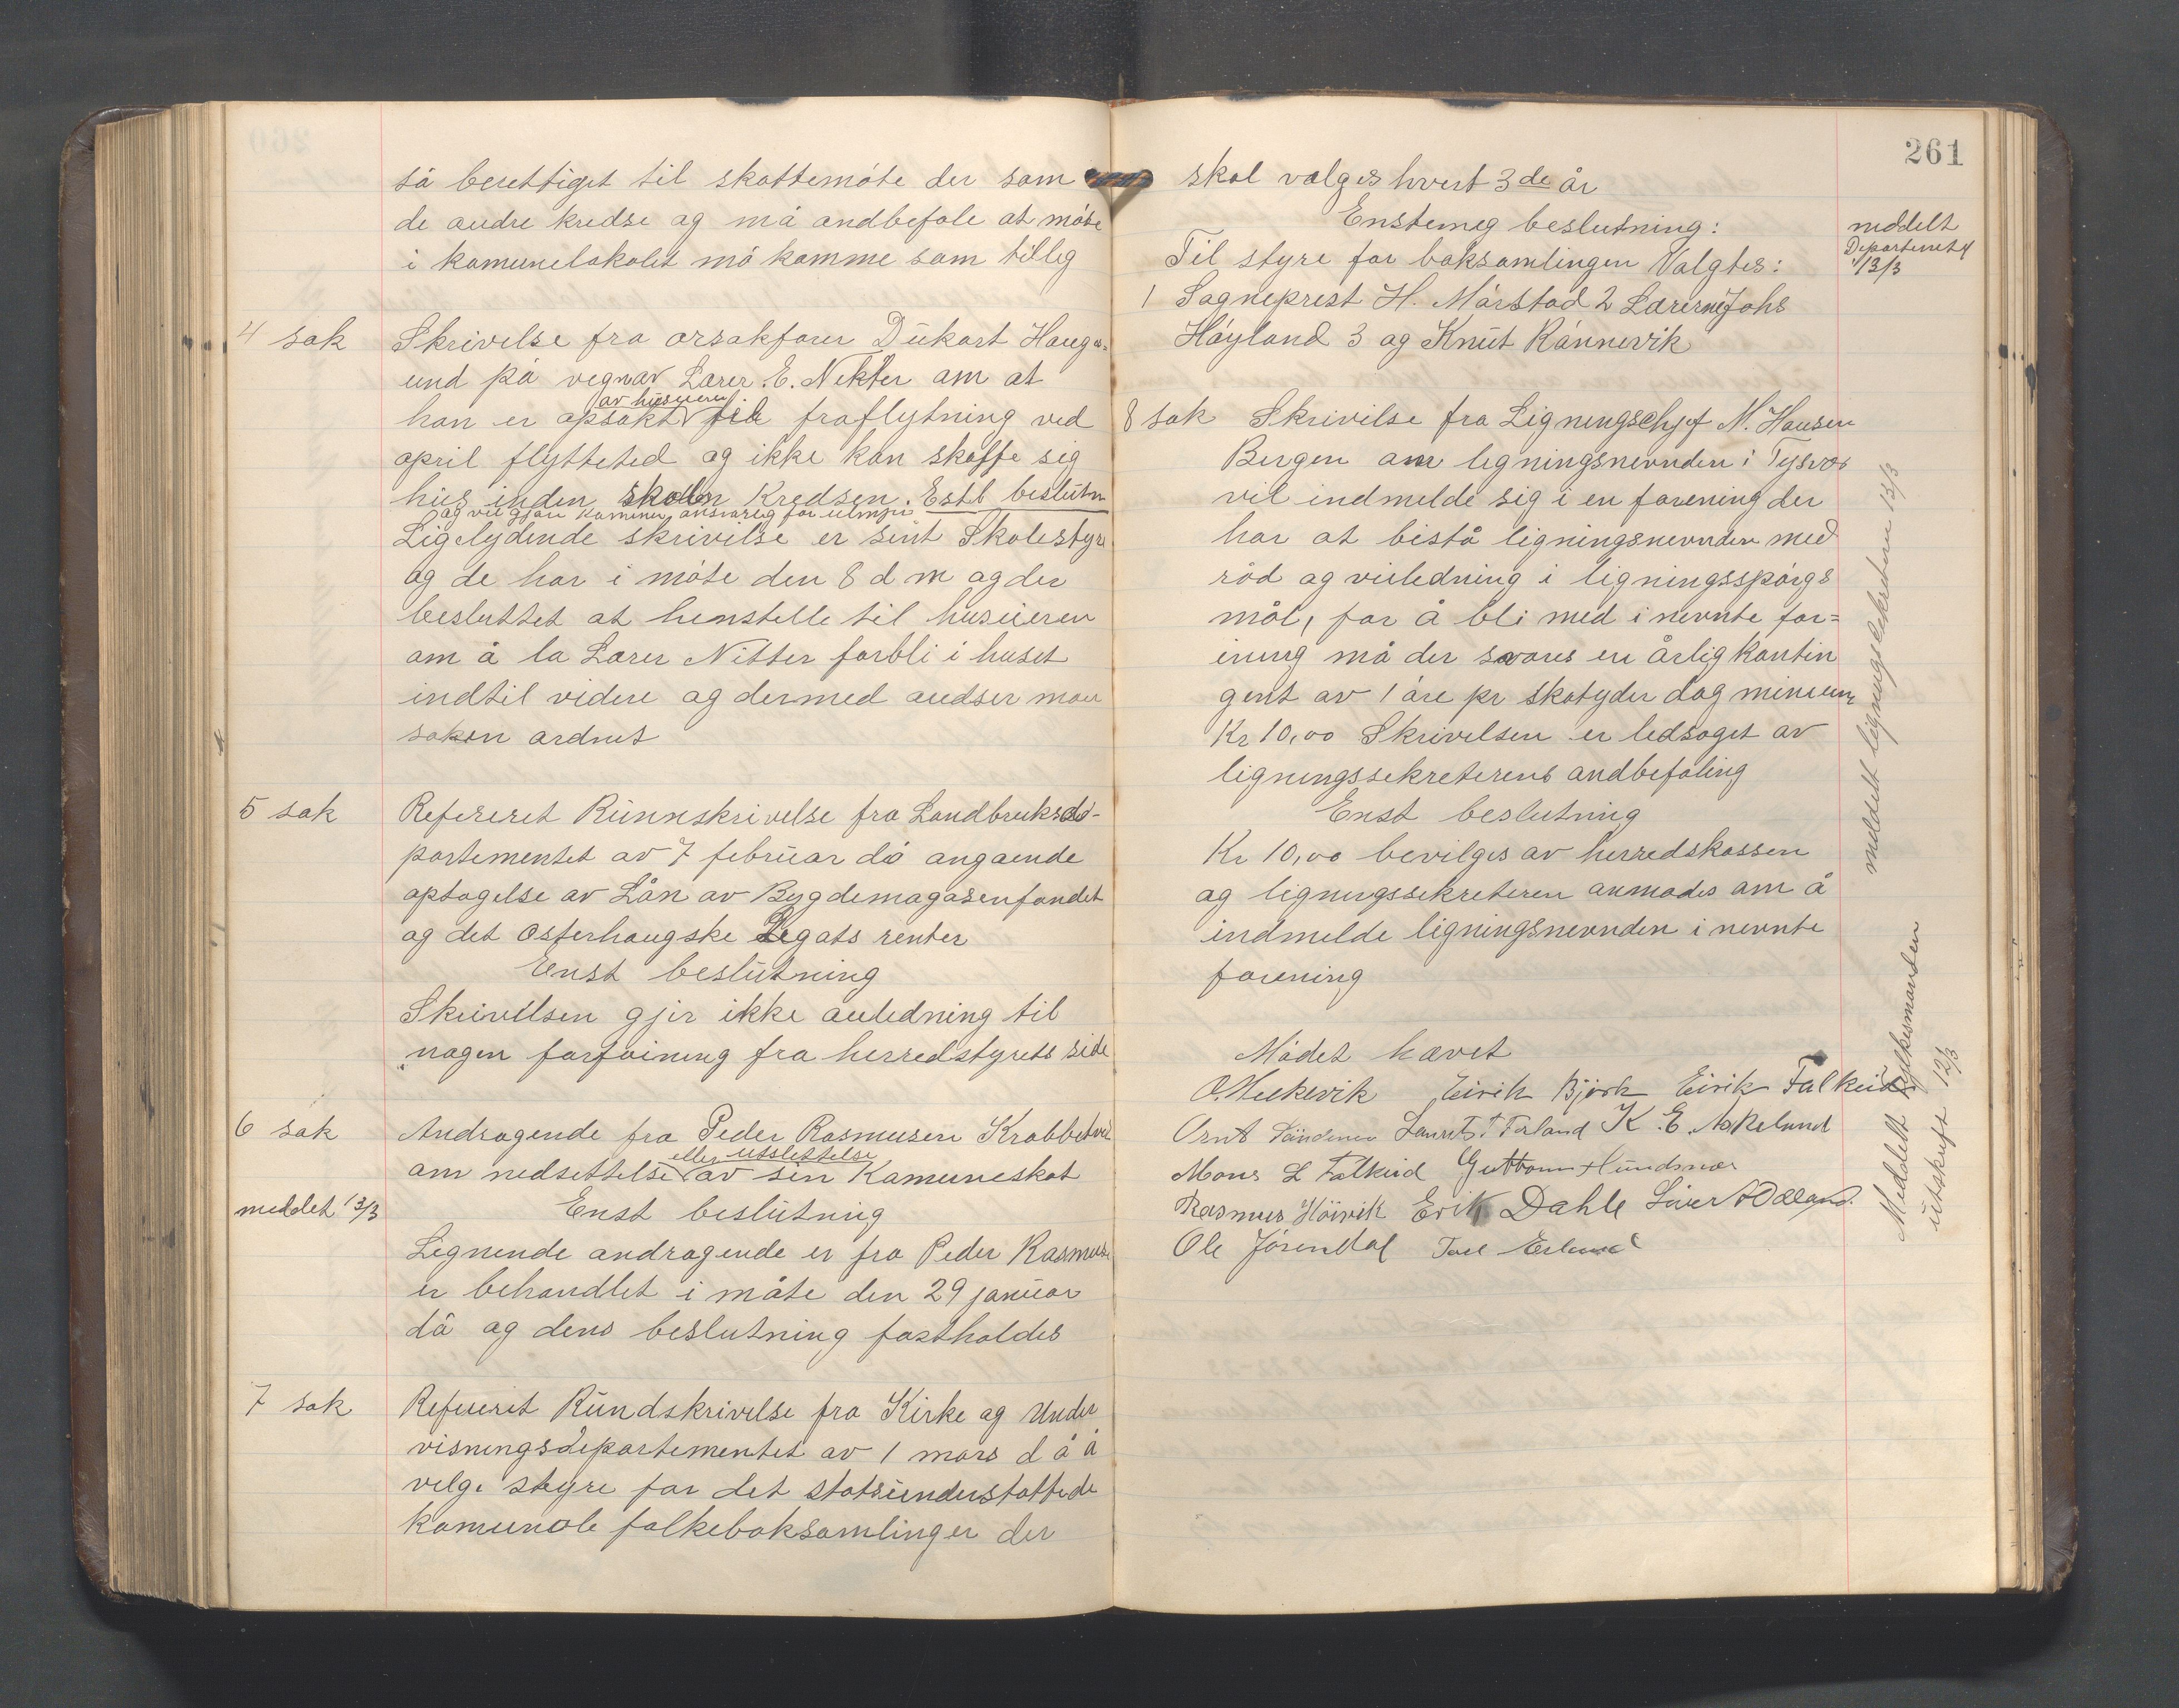 så berettiget til skattemöte der som
de andre kredse og må andbefale at möte
i komunelokalet må komme som tillig
4 sak Skrivelse fra orsakförer Dükart Hauge-
und på vegnav Lærer E. Nitter om at
av huseieren
han er opsakt til fraflytning ved
april flyttetid og ikke kan skaffe sig
hus inden skolen Kredsen. Estb beslutn
og vil gjöre kommunen ansvarlig for ulempe
Ligelydende skrivelse er sent Skolestyre
og de har i möte den 8 d m og der
besluttet at henstelle til huseieren
om å la Lærer Nitter forbli i huset
indtil videre og dermed andser man
saken ordnet
5 sak Refereret Rünnskrivelse fra Landbruksde-
partementet av 7 februar då angaende
optagelse av Lån av Bygdemagasenfondet
og det Osterhaugske Legats renter
Enst beslutning
Skrivelsen gjir ikke anledning til
nogen forföining fra herredstyrets side
6 sak Andragende fra Peder Rasmusen Krabbetvei
eller utslettelse
om nedsettelse av sin Kamuneskat
meddelt 13/3 Enst beslutning
Lignende andragende er fra Peder Rasmuse
er behandlet i måte den 29 januar
då og dens beslutning fastholdes
7 sak Refereret Rundskrivelse fra Kirke og Under
visningsdepartementet av 1 mars d å å
velge styre for det statsunderstöttede
komunale folkeboksamlinger der
261
skal vælges hvert 3de år
Enstemeg beslutning:
meddelt
Departemetet
13/3
Til styre for boksamlingen Valgtes:
1 Sogneprest H. Mårstad 2 Lærerne Johs
Höyland 3 og Knut Rånnevik
8 sak Skrivelse fra Ligningschef N. Hansen
Bergen om legningsnevnden i Tysvær
vil indmelde sig i en forening der
har at bistå ligningsnevnden med
råd og veiledning i ligningsspörgs
mål, for å bli med i nevnte for=
ening må der svares en årlig kontin
gent av 1 öre pr skatyder dog minemm
Kr 10,00 Skrivelsen er ledsaget av
ligningssekreterens andbefaling
Enst beslutning
Kr 10,00 bevilges av herredskassen
og legningssekreteren anmodes om å
indmelde ligningsnevnden i nevnte
forening
meddelt ligningssekreteren 13/3
Mödet hævet
O. Meekevik Eirik Björk Eirik Falkeid
Ornt Laurits T Førland K. E. Askelund
Mons L Falkeid Guttorm Hundsnes
Rasmus Höivik Erik Dahle Siver A Odland.
Ole Jörendal
Meddelt Fylkesmanden
utskrift 12/3